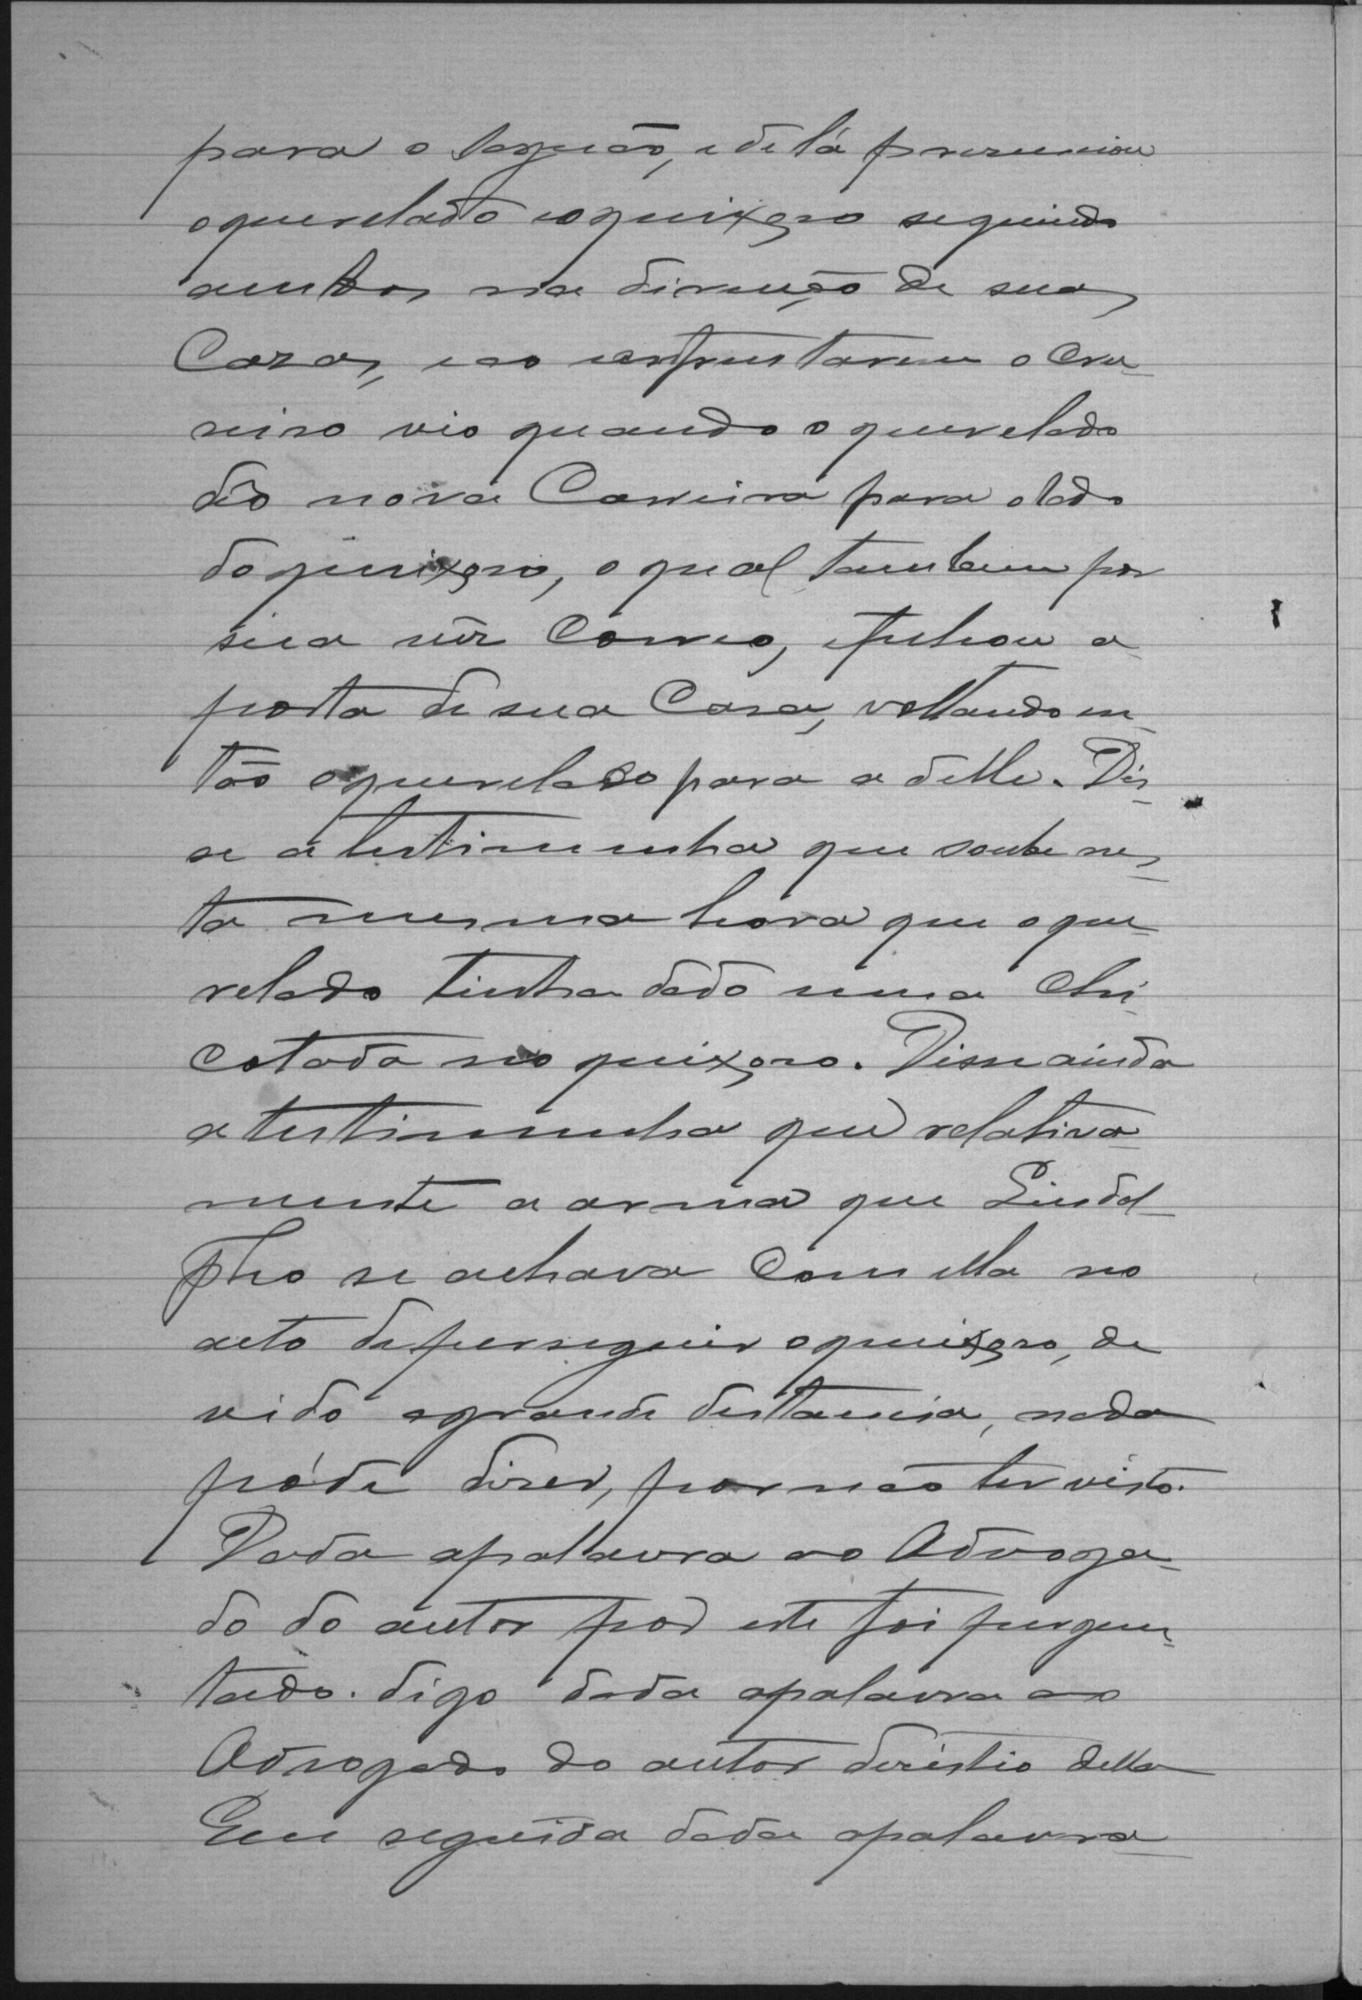 para o saguão, e de lá presenciou
o querelado e o queixoso seguindo
ambos na direcção de suas
Casas, e ao confrontarem o Cru-
seiro vio quando o querelado
dêo nova Carreira para o lado
do queixoso, o qual tambem por
sua vêz Correo, e fechou a
porta de sua Casa, voltando en-
tão o querelado para a delle. Dis-
se a testimunha que soube nes-
ta mesma hora que o que-
relado tinha dado uma Chi-
cotada no queixoso. Disse ainda
a testimunha que relativa-
mente a arma que Lindol-
pho se achava Com ella no
acto de perseguir o queixoso, de
vido a grande distancia, nada
póde diser, por não ter visto.
Dada a palavra ao Advoga-
do do autor por este foi pergun-
tado. digo dada a palavra ao
Advogado do autor desistio della
Em seguida dada a palavra